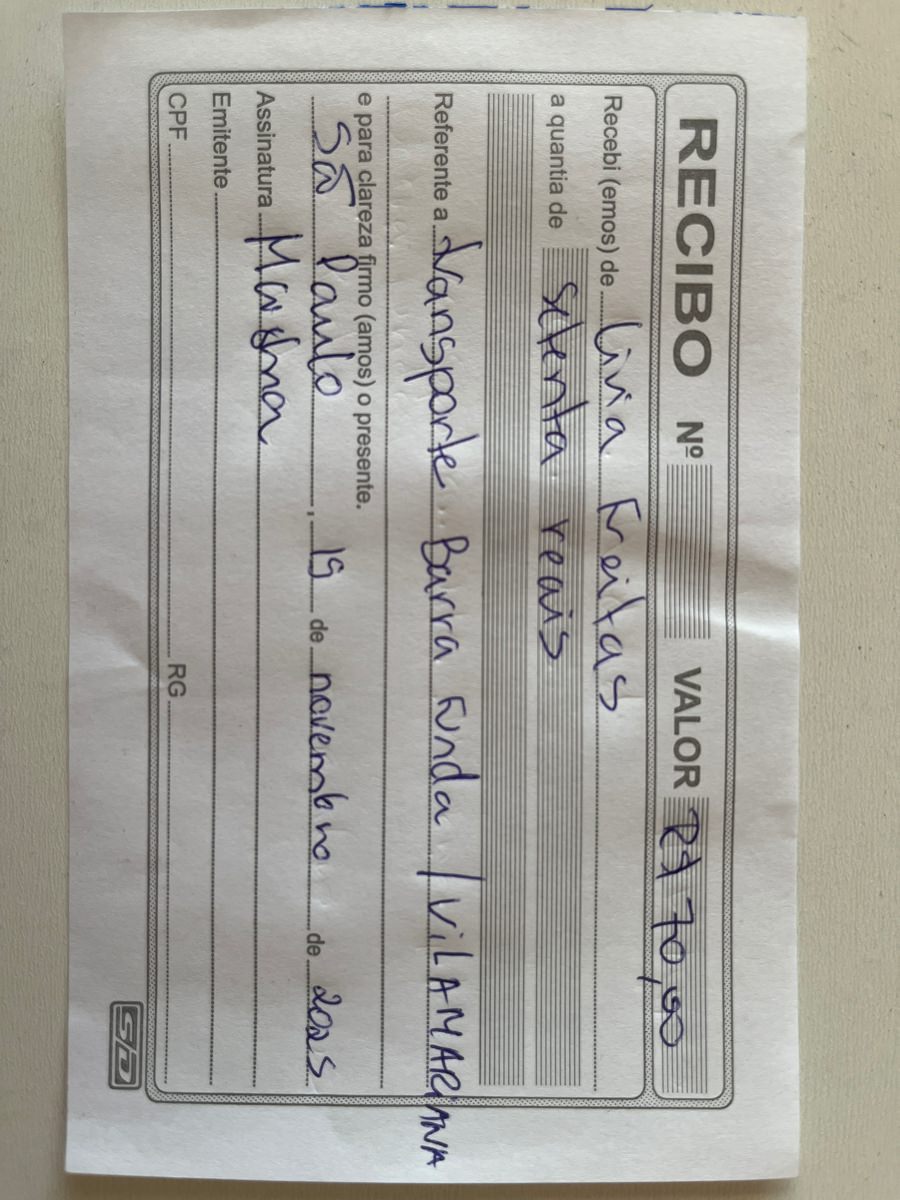 RECIBO Nº VALOR R$ 70,00
Recebi (emos) de Livia Freitas
a quantia de setenta reais
Referente a transporte Barra Funda / VILA MARIANA
e para clareza firmo (amos) o presente.
São Paulo, 19 de novembro de 2025
Assinatura
Emitente
CPF RG
SD